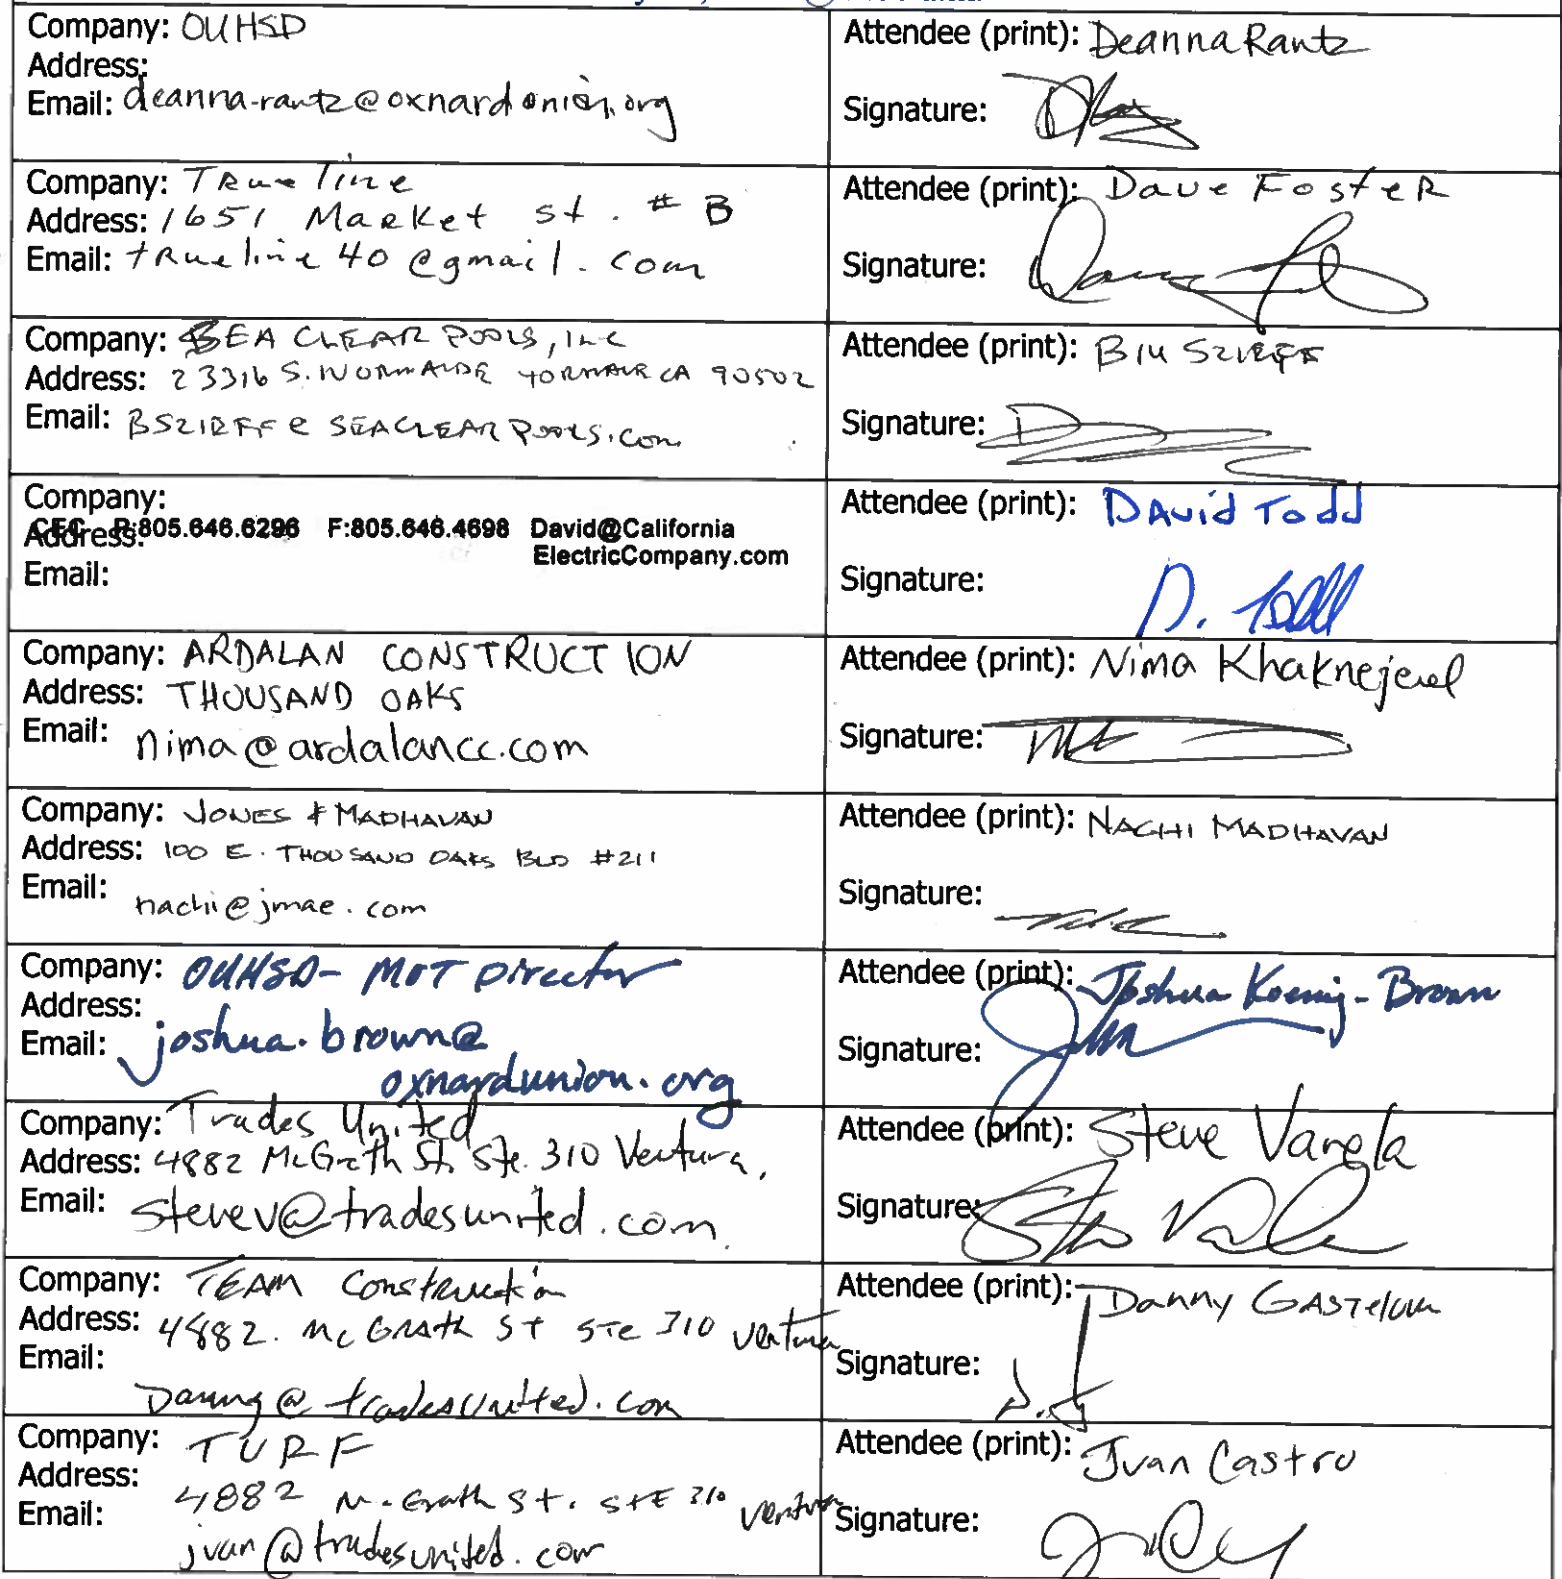 Company: OUHSD
Address:
Email: deanna.rantz@oxnardunion.org
Attendee (print): Deanna Rantz
Signature:
Company: TRueline
Address: 1651 MaRKet st. # B
Email: tRueline40@gmail.com
Attendee (print): Dave FosteR
Signature:
Company: SEA CLEAR POOLS, INC
Address: 23316 S. NORMANDE TORRANCE CA 90502
Email: BSZIRFF@SEACLEARPOOLS.COM
Attendee (print): Bill SZIRFF
Signature:
Company:
CEC P:805.646.6296 F:805.646.4698 David@California
Address:
ElectricCompany.com
Email:
Attendee (print): DAvid Todd
Signature: D. Todd
Company: ARDALAN CONSTRUCTION
Address: THOUSAND OAKS
Email: nima@ardalancc.com
Attendee (print): Nima Khaknejad
Signature:
Company: JONES & MADHAVAN
Address: 100 E. THOUSAND OAKS BLD #211
Email: nachi@jmae.com
Attendee (print): NACHI MADHAVAN
Signature:
Company: OUHSD- MOT Director
Address:
Email: joshua.brown@
oxnardunion.org
Attendee (print): Joshua Koenig-Brown
Signature:
Company: Trades United
Address: 4882 McGrath St. Ste. 310 Ventura,
Email: stevev@tradesunited.com
Attendee (print): Steve Varela
Signature:
Company: TEAM Construction
Address: 4882. McGRAth ST STe 310 Ventura
Email:
Danny@tradesunited.com
Attendee (print): Danny GASTelum
Signature:
Company: TURF
Address:
4882 McGrath St. StE 310 Ventura
Email:
jvan@tradesunited.com
Attendee (print): Jvan Castro
Signature: